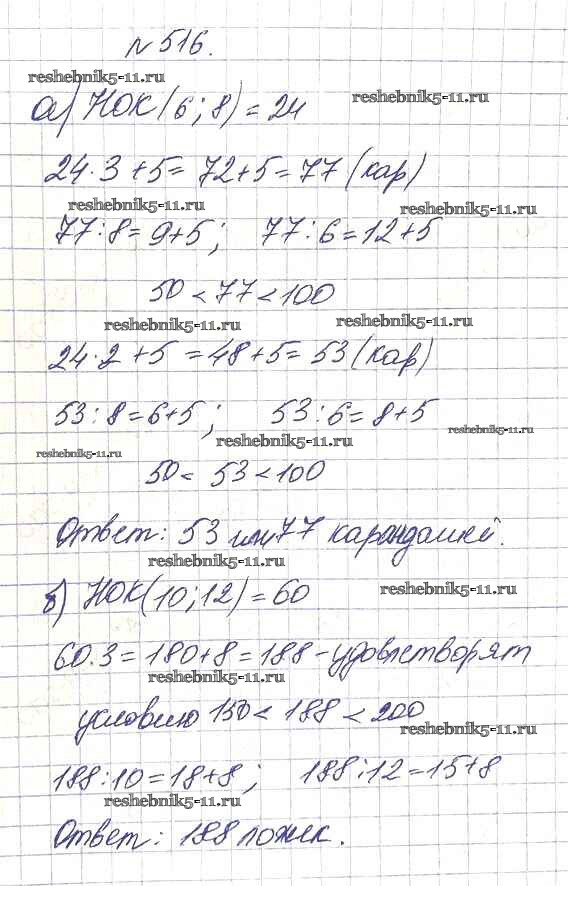 № 516.
reshebnik5-11.ru
reshebnik5-11.ru
а) НОК(6; 8) = 24
24·3 + 5 = 72 + 5 = 77 (кар)
reshebnik5-11.ru
reshebnik5-11.ru
77 : 8 = 9+5; 77 : 6 = 12+5
50 < 77 < 100
reshebnik5-11.ru
reshebnik5-11.ru
24·2 + 5 = 48 + 5 = 53 (кар)
53 : 8 = 6+5; 53 : 6 = 8+5
reshebnik5-11.ru
reshebnik5-11.ru
reshebnik5-11.ru
50 < 53 < 100
Ответ: 53 или 77 карандашей.
reshebnik5-11.ru
reshebnik5-11.ru
б) НОК(10; 12) = 60
60·3 = 180 + 8 = 188 - удовлетворят
reshebnik5-11.ru
условию 150 < 188 < 200
reshebnik5-11.ru
188 : 10 = 18+8; 188 : 12 = 15+8
reshebnik5-11.ru
Ответ: 188 ложек.